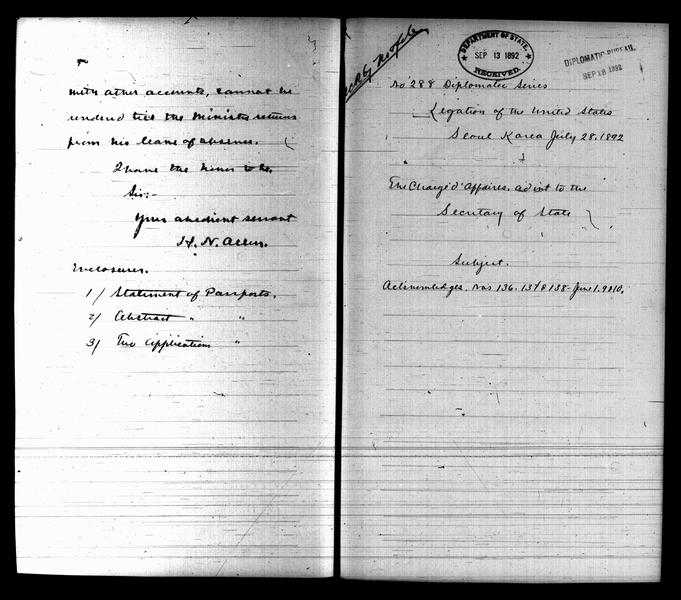 with other accounts, cannot be
rendered till the Minister returns
from his leave of absence.
I have the honor to be,
Sir:-
Your obedient servant
H. N. Allen.
Enclosures.
1/ Statement of Passports.
2/ Abstract " "
3/ Two Applications "
DEPARTMENT OF STATE.
SEP 13 1892
RECEIVED.
DIPLOMATIC BUREAU.
SEP 13 1892
No 288 Diplomatic Series
Legation of the United States
Seoul Korea July 28. 1892
The Chargé d'Affaires. ad int to the
Secretary of State
Subject.
Acknowledges. Nos 136. 137 & 138 - June 1. 9 & 10.